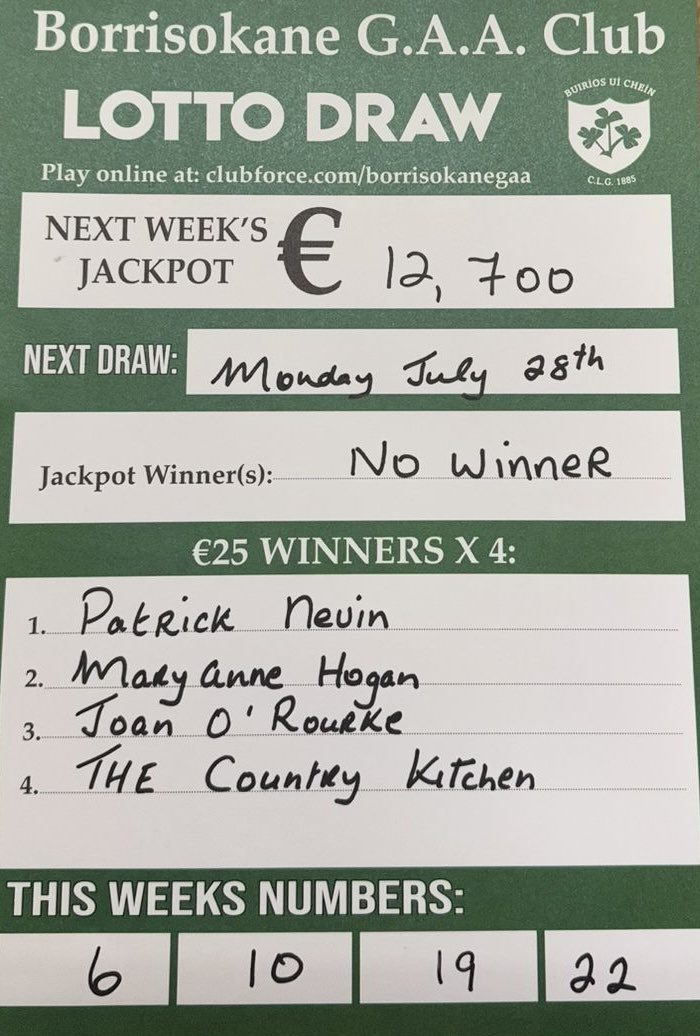 Borrisokane G.A.A. Club
LOTTO DRAW
BUIRÍOS UÍ CHEIN
C.L.G. 1885
Play online at: clubforce.com/borrisokanegaa
NEXT WEEK'S JACKPOT € 12,700
NEXT DRAW: Monday July 28th
Jackpot Winner(s): No Winner
€25 WINNERS X 4:
1. Patrick Nevin
2. Mary Anne Hogan
3. Joan O'Rourke
4. THE Country Kitchen
THIS WEEKS NUMBERS:
6 10 19 22